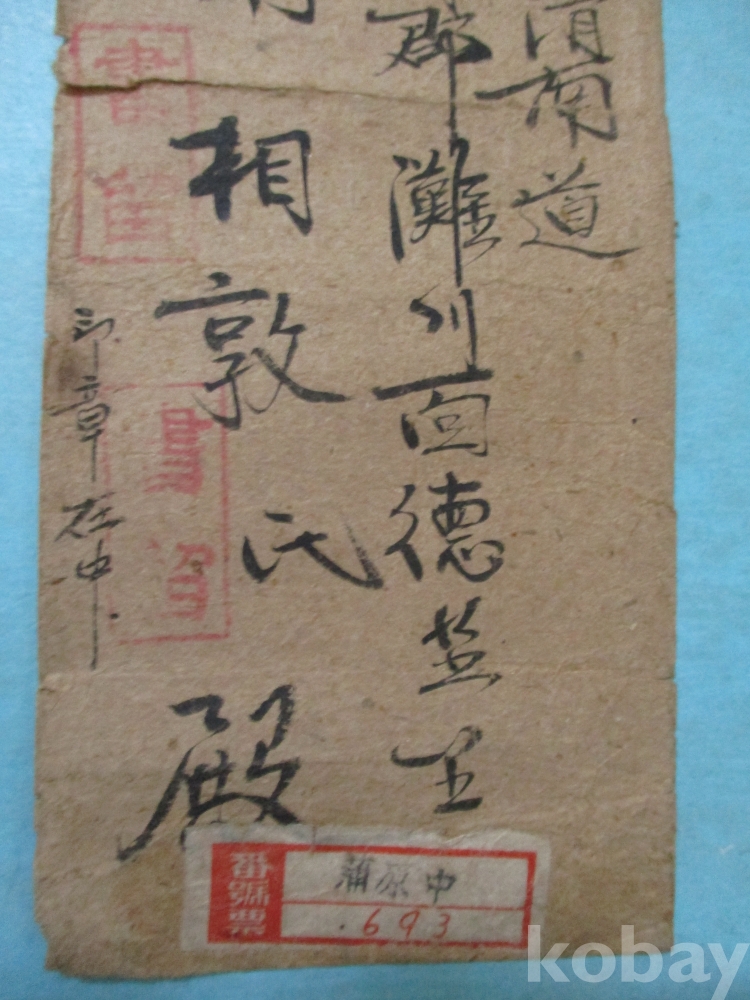 南道
郡灘川面德芝里
相敦氏
殿
書留
印章在中
番號票
蒲原中
693
kobay